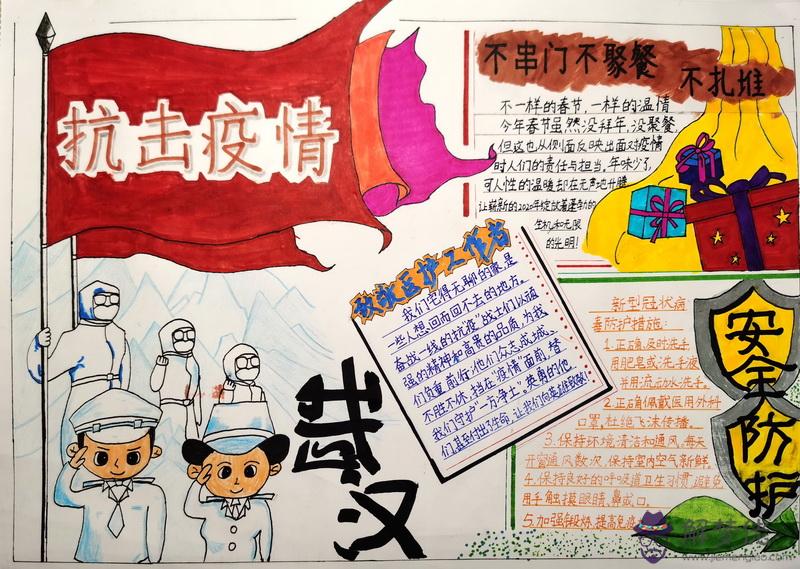 抗击疫情
不串门不聚餐
不扎堆
不一样的春节,一样的温情
今年春节虽然没拜年,没聚餐,
但这也从侧面反映出面对疫情
时人们的责任与担当。年味少了,
可人性的温暖却在无声地升腾
让崭新的2020年绽放着蓬勃的
生机和无限
的光明!
致敬医护工作者
我们觉得无聊的家,是
一些人想回而回不去的地方。
奋战一线的抗疫“战士们以顽
强的精神和高贵的品质,为我
们负重前行,他们众志成城、
不胜不休,挡在“疫情”面前,替
我们守护“一方净土”。英勇的他
们,甚至付出了生命,让我们向英雄致敬!
武汉
安全防护
新型冠状病
毒防护措施:
1.正确,及时洗手
用肥皂或洗手液
并用流动水洗手。
2.正确佩戴医用外科
口罩,杜绝飞沫传播。
3.保持环境清洁和通风,每天
开窗通风数次,保持室内空气新鲜。
4.保持良好的呼吸道卫生习惯,避免
用手触摸眼睛、鼻或口。
5.加强锻炼,提高免疫